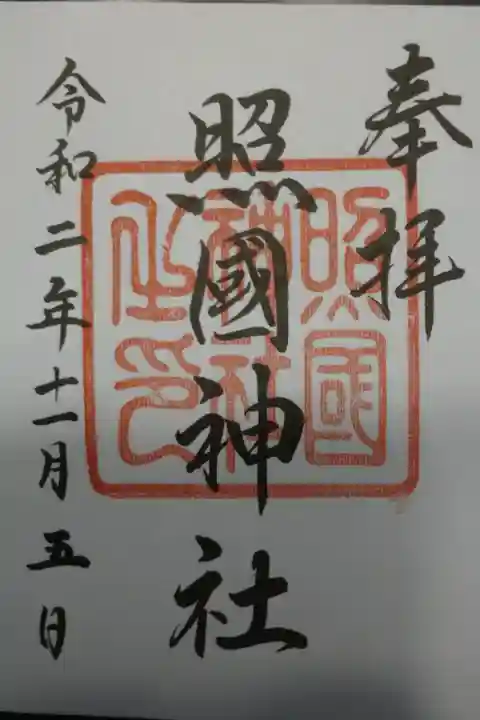 奉拝
照國神社
令和二年十一月五日
照國
神社
之印